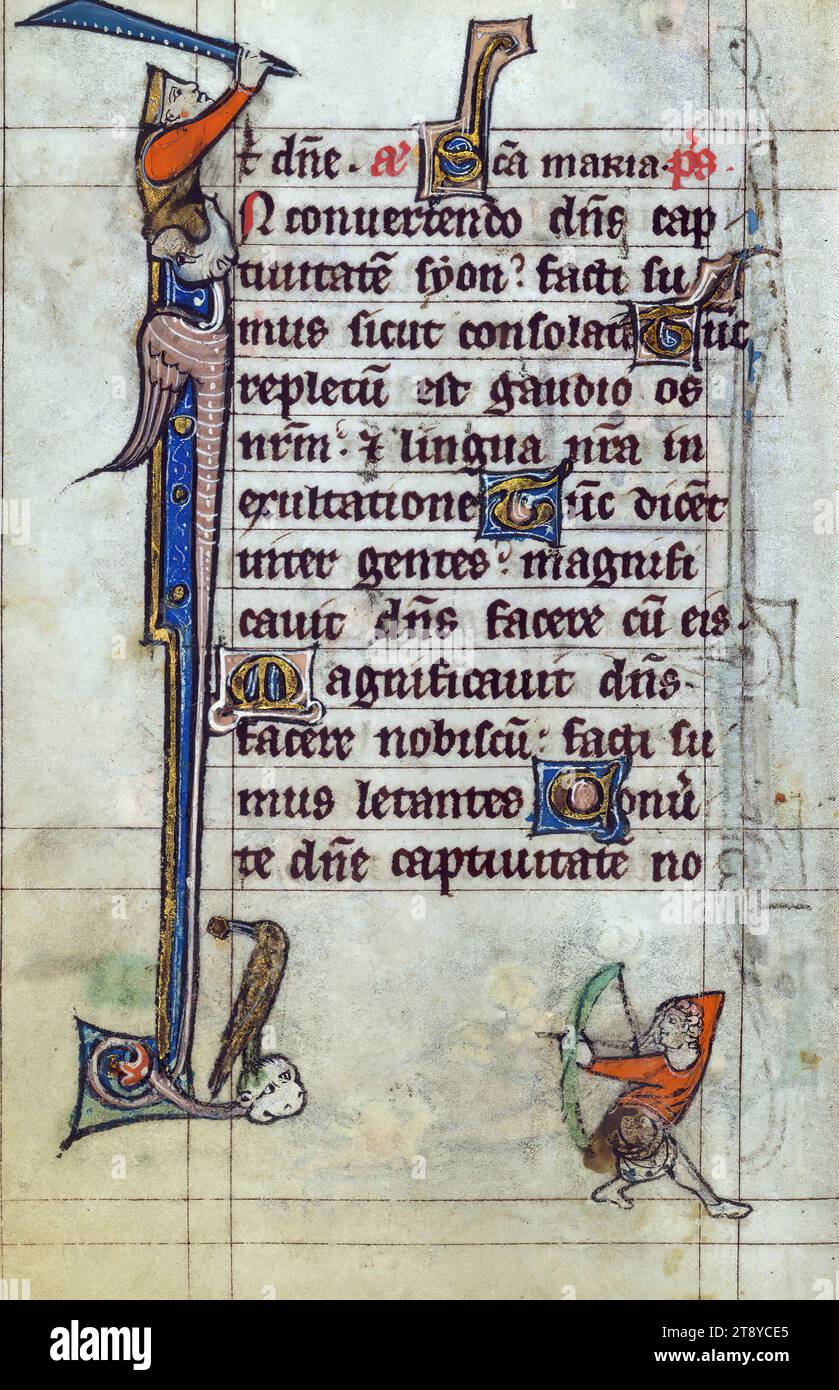 t dn̄e. a᷒ Sc̄a maria. p̄s.
N conuertendo dn̄s cap
tiuitatē syon: facti su
mus sicut consolati Tūc
repletū est gaudio os
nr̄m: ⁊ lingua nr̄a in
exultatione Tūc dicēt
inter gentes: magnifi
cauit dn̄s facere cū eis.
Magnificauit dn̄s.
facere nobiscū: facti su
mus letantes Conu̾
te dn̄e captiuitatē no
alamy
Image ID: 2T8YCE5
www.alamy.com